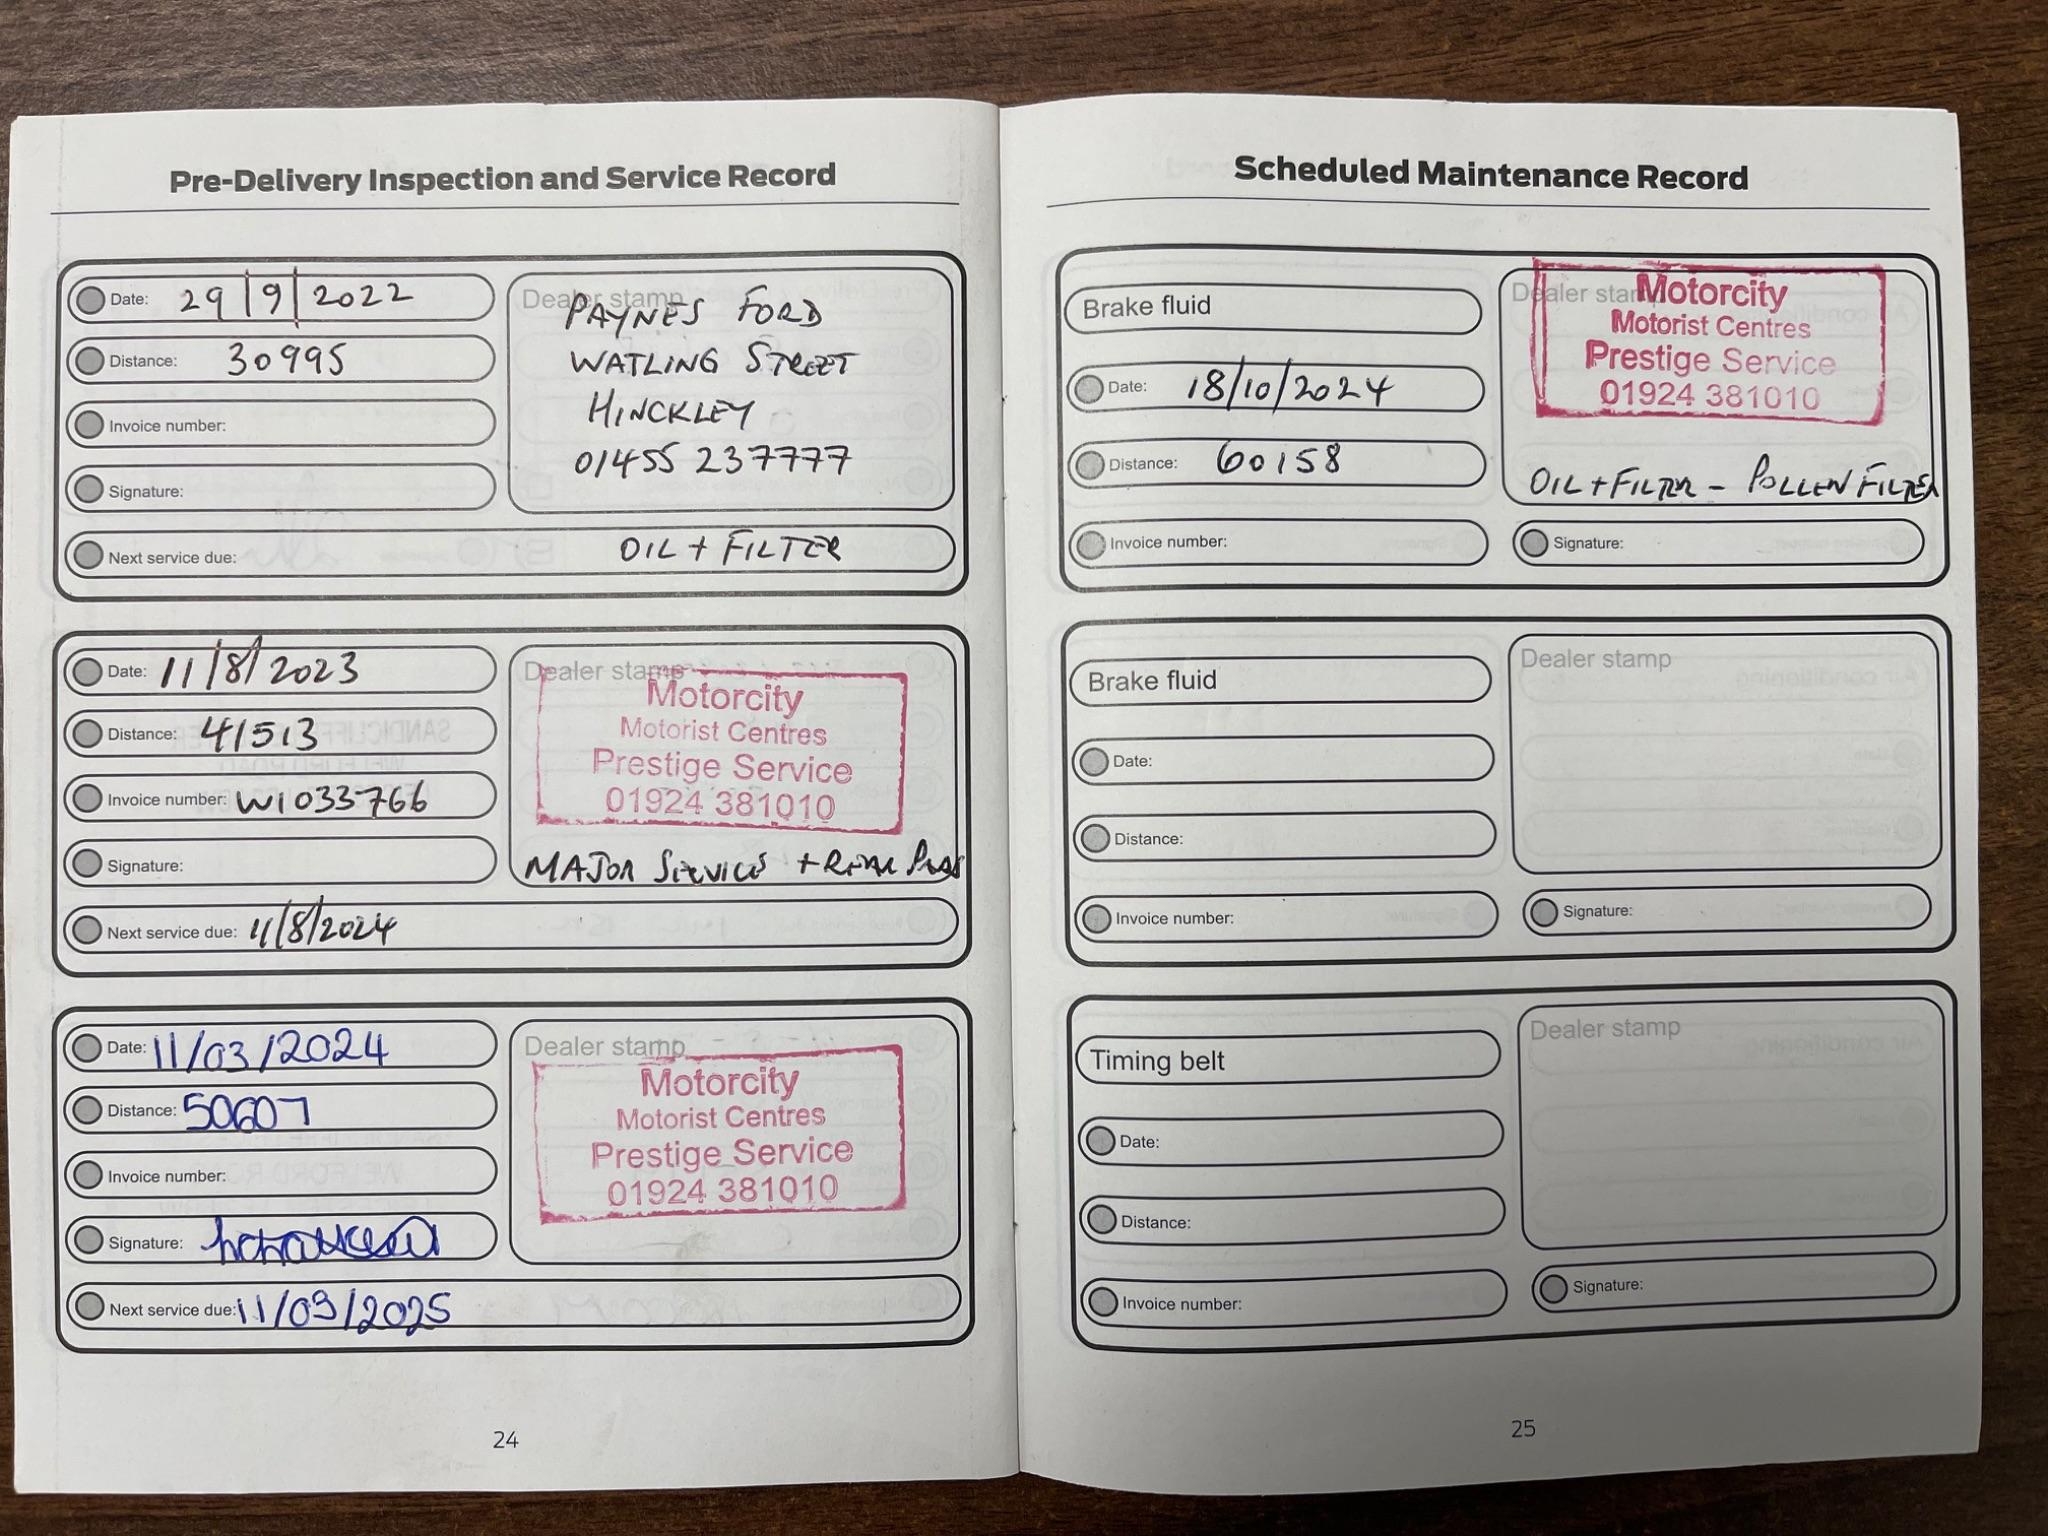 Pre-Delivery Inspection and Service Record
Date: 29/9/2022
Distance: 30995
Invoice number:
Signature:
Next service due: OIL + FILTER
Dealer stamp
PAYNES FORD
WATLING STREET
HINCKLEY
01455 237777
Date: 11/8/2023
Distance: 41513
Invoice number: W1033766
Signature:
Next service due: 11/8/2024
Dealer stamp
Motorcity
Motorist Centres
Prestige Service
01924 381010
MAJOR SERVICE + REAR PADS
Date: 11/03/2024
Distance: 50607
Invoice number:
Signature:
Next service due: 11/03/2025
Dealer stamp
Motorcity
Motorist Centres
Prestige Service
01924 381010
24
Scheduled Maintenance Record
Brake fluid
Date: 18/10/2024
Distance: 60158
Invoice number:
Dealer stamp
Motorcity
Motorist Centres
Prestige Service
01924 381010
OIL + FILTER - POLLEN FILTER
Signature:
Brake fluid
Date:
Distance:
Invoice number:
Dealer stamp
Signature:
Timing belt
Date:
Distance:
Invoice number:
Dealer stamp
Signature:
25